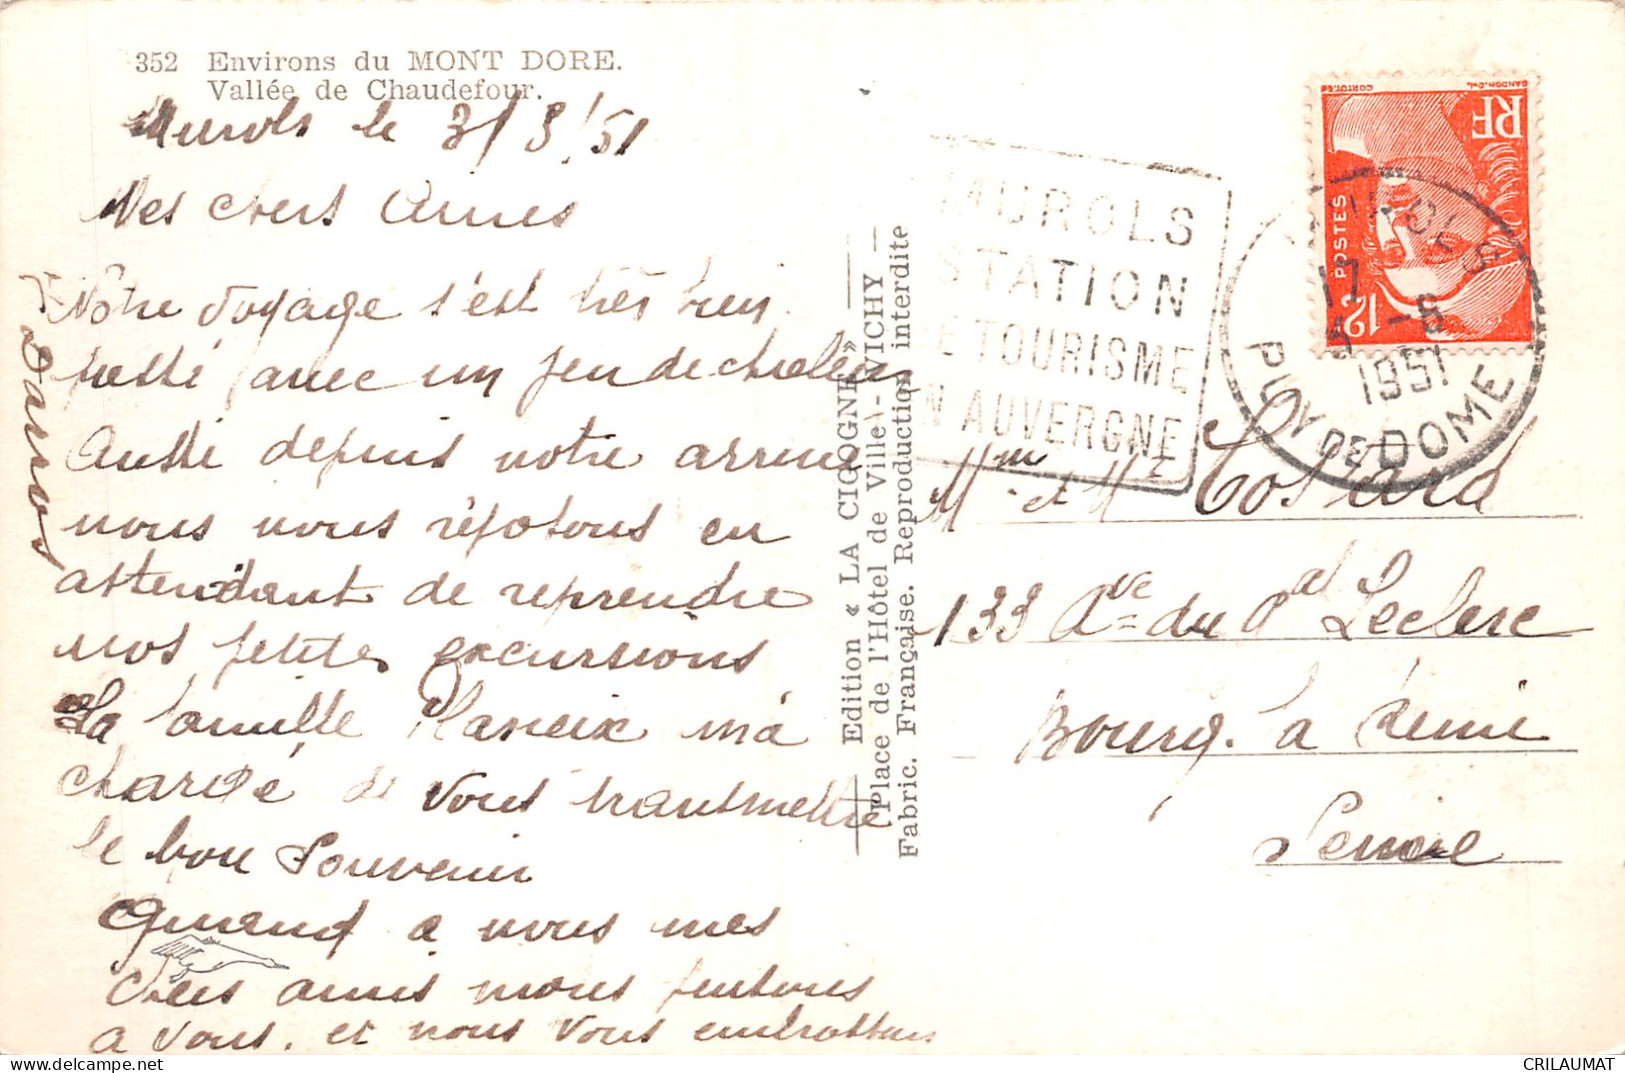 352 Environs du MONT DORE.
Vallée de Chaudefour.
Murols le 3/8/51
Mes chers Amies
Notre voyage s'est très bien
passé avec un peu de chaleur
Aussi depuis notre arrivée
nous nous réposons en
attendant de reprendre
nos petites excursions
La famille m'a
chargé de vous transmettre
le bon Souvenir
Quand a nous mes
Chers amis nous pensons
a vous. et nous vous embrassons
Edition « LA CIGOGNE »
Place de l'Hôtel de Ville - VICHY
Fabric. Française. Reproduction interdite
MUROLS
STATION
DE TOURISME
EN AUVERGNE
RF
POSTES
12F
GANDON.DEL
CORTOT.SC
MUROLS
17
4 -8
1951
PUY DE DOME
Mme et Mr Cosard
133 Ave du Gal Leclerc
Bourg. la Reine
Seine
CRILAUMAT